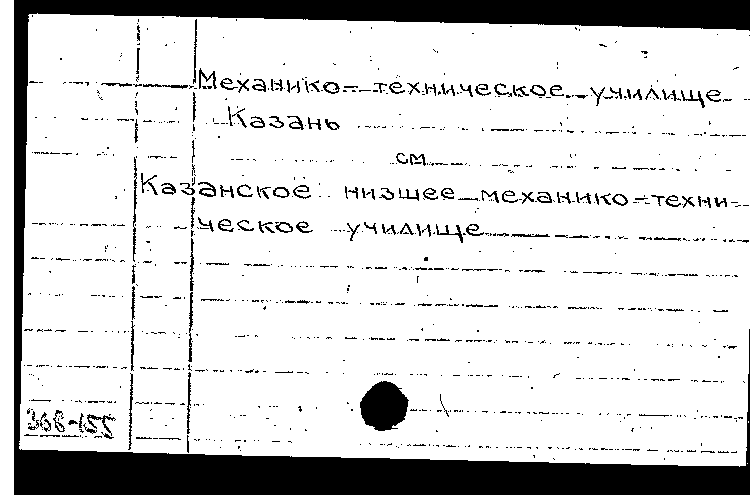 Механико-техническое училище
Казань
см
Казанское низшее механико-техни-
ческое училище
368-155